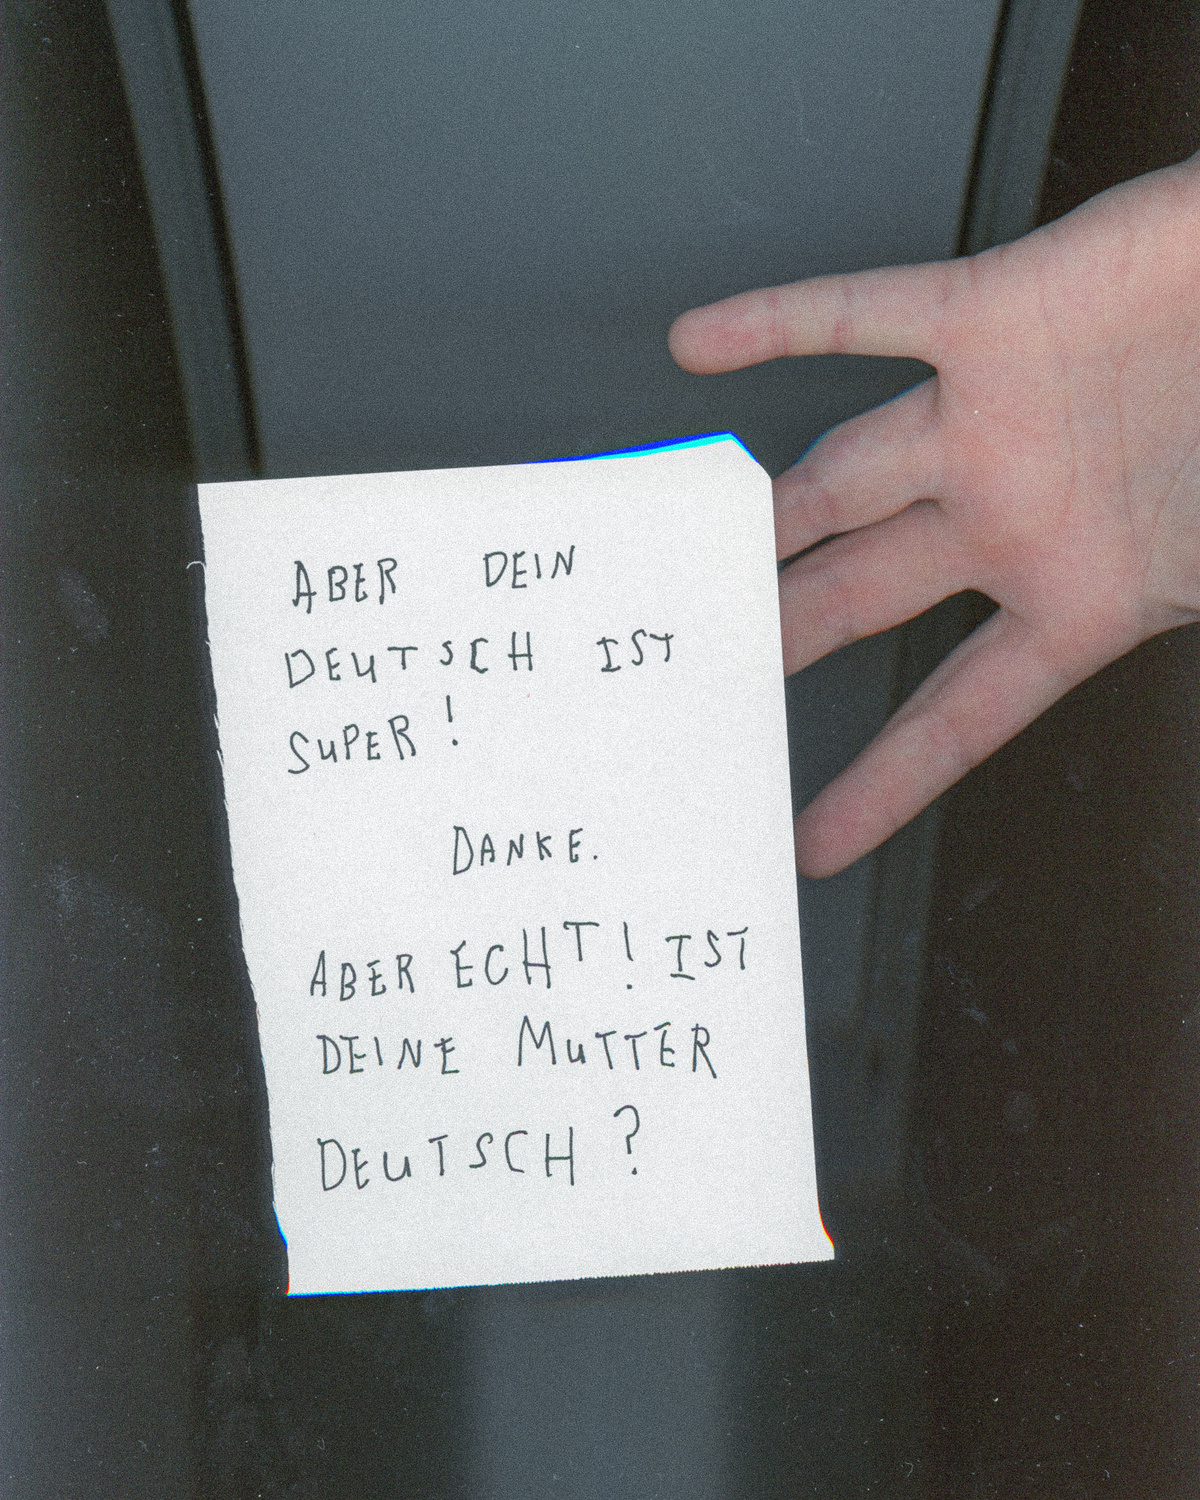 ABER DEIN
DEUTSCH IST
SUPER!
DANKE.
ABER ECHT! IST
DEINE MUTTER
DEUTSCH?